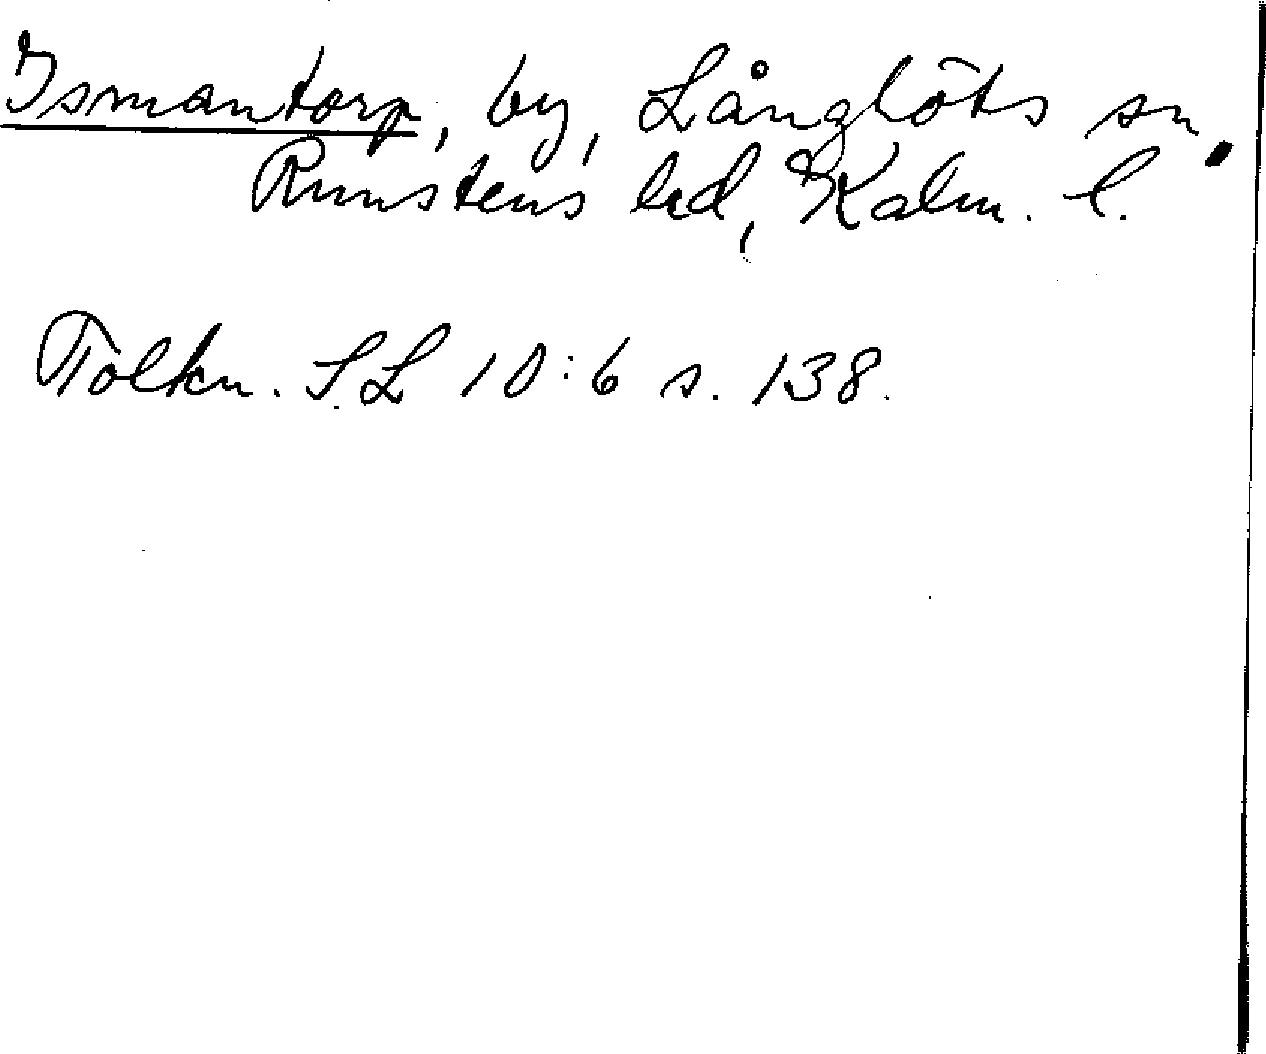 Ismantorp, by, Långlöts sn,
Runstens hd, Kalm. l.
Tolkn. SL 10:6 s. 138.